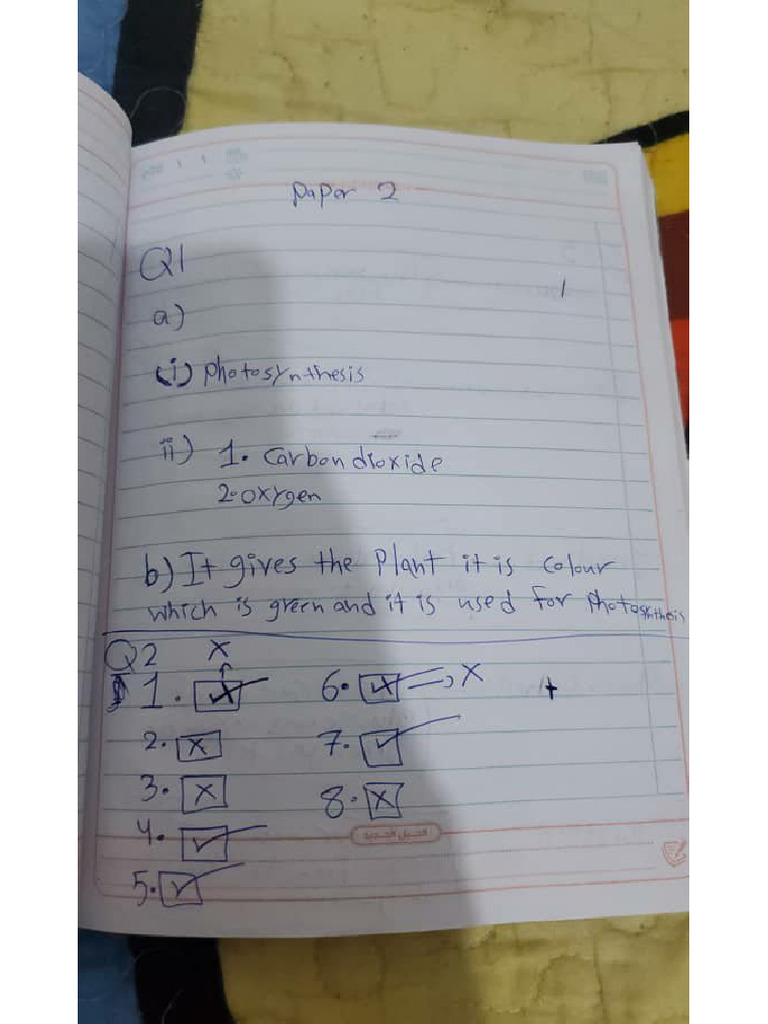 Paper 2
Q1
a)
(i) Photosynthesis
ii) 1. Carbon dioxide
2. Oxygen
b) It gives the Plant it is colour
which is green and it is used for Photosynthesis
Q2 X
1. X 6. X => X
2. X 7. ✓
3. X 8. X
4. ✓
الجيل الجديد
5. ✓